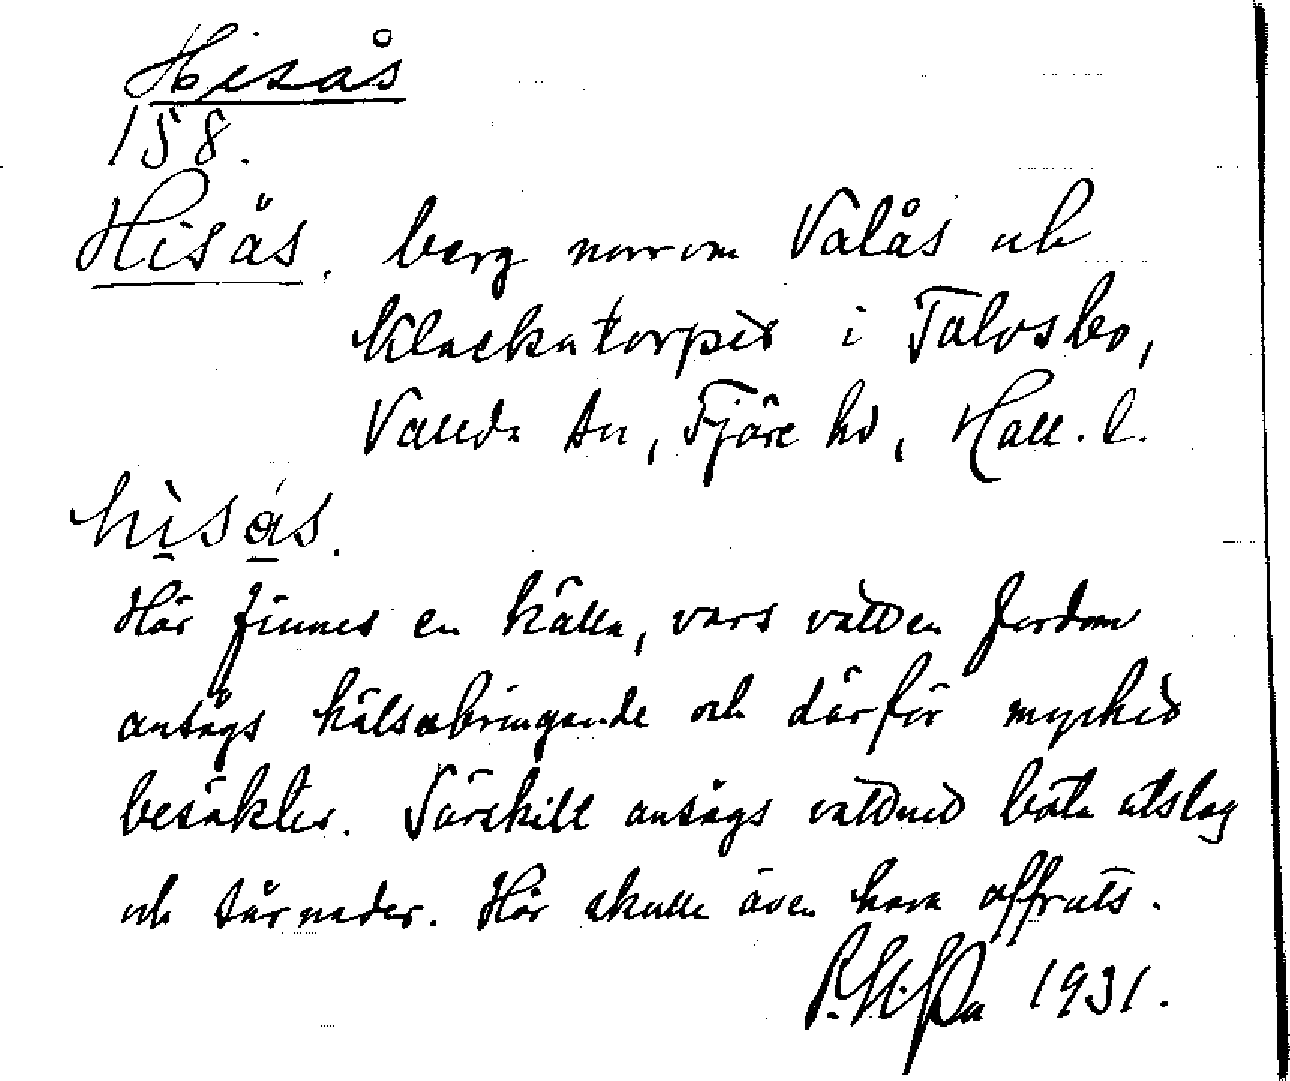 Hisås
158.
Hisås, berg norrom Valås och
Klackatorpet i Tålosbo,
Vallda sn, Fjäre hd, Hall. l.
hìsás.
Här finnes en källa, vars vatten fordom
ansågs hälsobringande och därför mycket
besöktes. Särskilt ansågs vattnet bota utslag
och sårnader. Här skulle även hava offrats.
1931.